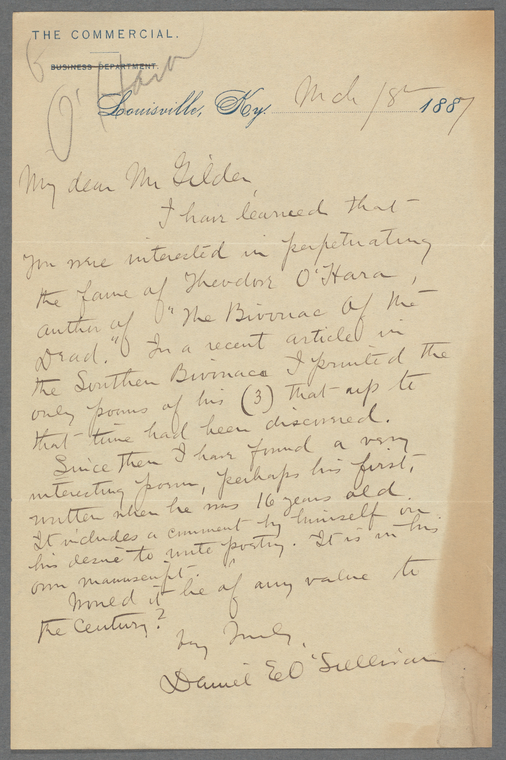 THE COMMERCIAL.
BUSINESS DEPARTMENT.
O'Hara
Louisville, Ky. Mch 18 1887
My dear Mr Gilder,
I have learned that
you were interested in perpetuating
the fame of Theodore O'Hara,
author of "The Bivouac Of The
Dead." In a recent article in
the Southern Bivouac I printed the
only poems of his (3) that up to
that time had been discovered.
Since then I have found a very
interesting poem, perhaps his first,
written when he was 16 years old.
It includes a comment by himself on
his desire to write poetry. It is in his
own manuscript.
Would it be of any value to
the Century?
Very Truly,
Daniel E O'Sullivan